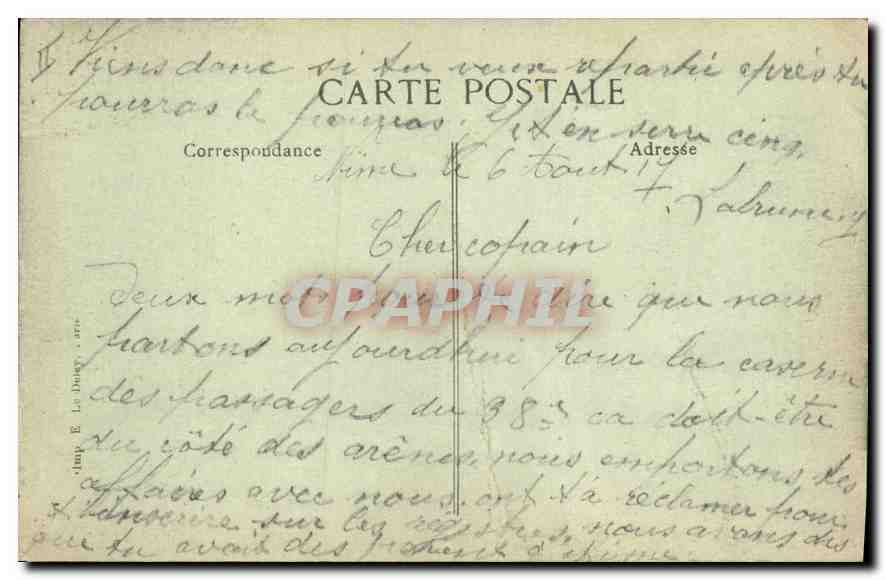 Viens donc si tu veux repartir après tu
pourras le
CARTE POSTALE
t'en serre cinq.
Correspondance
Adresse
Nime le 6 Aout 17
Cher copain
Deux mots pour te dire que nous
partons aujourdhui pour la caserne
des passagers du 38e ca doit-être
du côté des arênes, nous emportons tes
affaires avec nous, ont t'a réclamer pour
t'inscrire sur les registres, nous avons dis
que tu avait des
CPAPHIL
Imp E. Le Deley, Paris